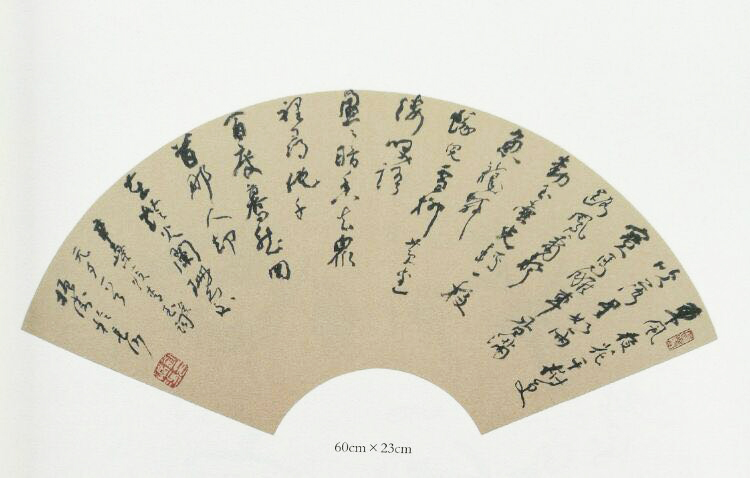 東風夜花千樹更
吹落星如雨
寶馬雕車香滿
路鳳簫聲
動玉壺光轉一夜
魚龍舞
蛾兒雪柳黃金
縷笑語
盈盈暗香去眾
裡尋他千
百度驀然回
首那人却
在燈火闌珊處
辛棄疾青玉案詞
元夕一首
60cm×23cm